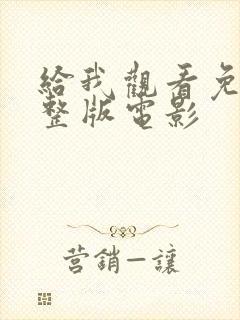 給我觀看免
整版電影
营銷—讓